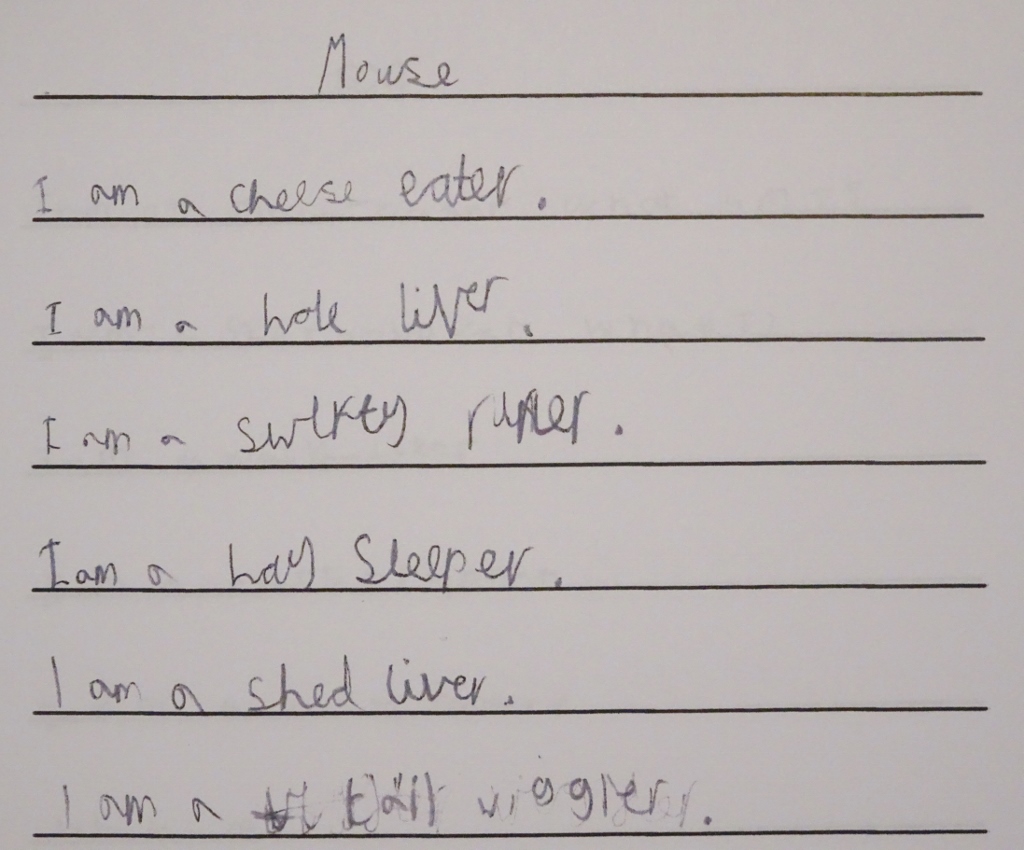 Mouse
I am a cheese eater.
I am a hole liver.
I am a runer.
I am a hay Sleeper.
I am a shed liver.
I am a tail viggler.